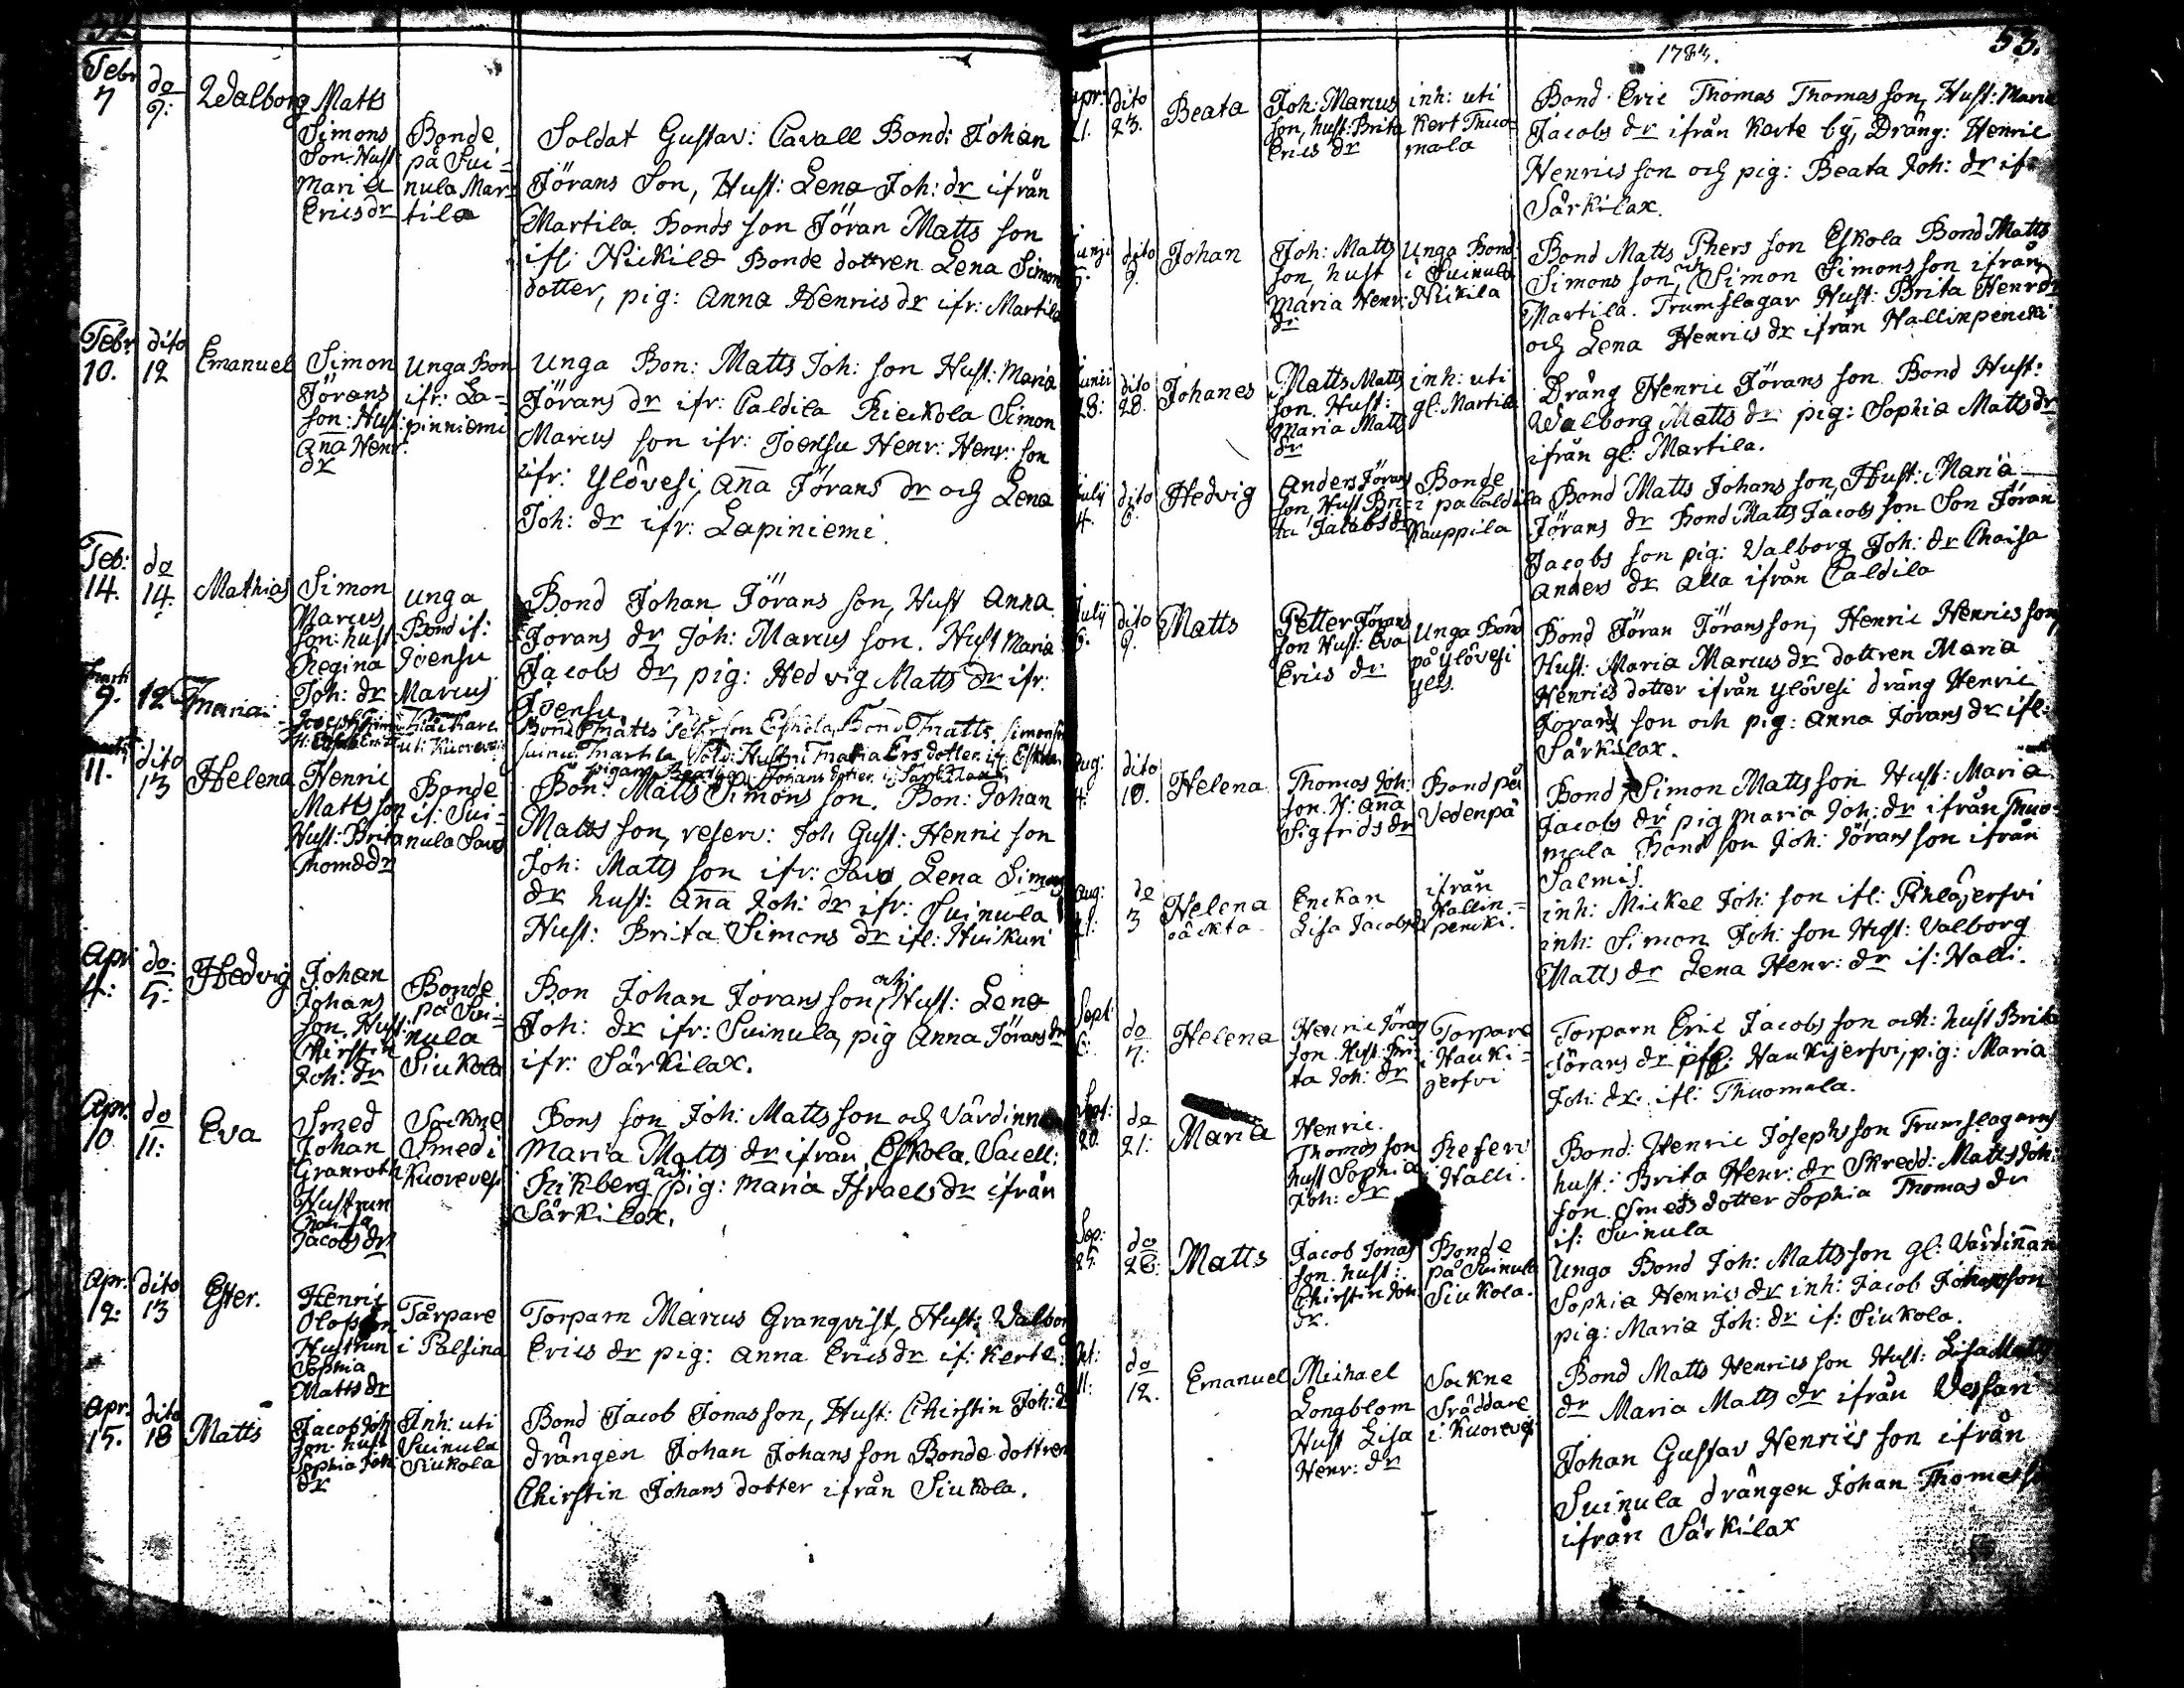 Febr
7
do
9:
Walborg
Matts
Simons
Son Hust
Maria
Erics dr
Bonde
på Sui-
nula Mar-
tila
Soldat Gustav: Cavall Bond: Johan
Jörans Son, Hust: Lena Joh: dr ifrån
Martila. Bonds son Jöran Matts son
ifl: Nickilä Bonde dottren Lena Simons
dotter, pig: Anna Henrics dr ifr: Martila
Febr.
10.
dito
12
Emanuel
Simon
Jörans
son: Hust:
Aña Henr:
dr
Unga Bon
ifr: La-
pinniemi
Unga Bon: Matts Joh: son Hust: Maria
Jörans dr ifr: Caldila Rieckola Simon
Marcus son ifr: Joensu Henr: Henr: son
ifr: Ylövesi, Aña Jörans dr och Lena
Joh: dr ifr: Lapiniemi.
Feb:
14.
do
14.
Mathias
Simon
Marcus
son: hust
Regina
Joh: dr
unga
Bond if:
Joensu
Marcus
Bond Johan Jörans son, Hust Anna
Jorans dr Joh: Marcus son. Hust Maria
Jacobs dr, pig: Hedvig Matts dr ifr:
Joensu
9.
12
Maria
uti Kuorevesi
Bond Matts Pehrson Eskola, Bond Matts Simonson
Suinu Martila Sold: Hustru Maria Ers dotter if: Eskola
pigan Johans dotter i Särkilax
11.
dito
13
Helena
Henric
Matts son
Hust: Brita
Thom dr
Bonde
if: Sui-
nula Savo
Bon: Matts Simons son. Bon: Johan
Matts son, reserv: Joh Gust: Henric son
Joh: Matts son ifr: Savo Lena Simons
dr hust: Aña Joh: dr ifr: Suinula
Hust: Brita Simons dr ifl: Huikuri
Apr
4:
do:
5:
Hedvig
Johan
Johans
son Hust:
Chirstin
Joh: dr
Bonde
på Sui-
nula
Siukola
Bon Johan Jorans son, och Hust: Lena
Joh: dr ifr: Suinula, pig Anna Jörans dr
ifr: Särkilax.
Apr.
10
do
11:
Eva
Smed
Johan
Granroth
Hustrun
Jacobs dr
Sockne
Smed i
Kuorevesi
Bons son Joh: Matts son och Värdinnan
Maria Matts dr ifrån Eskola. Sacell:
Rikberg och pig: Maria Israels dr ifrån
Särkilax.
Apr.
12:
dito
13
Ester.
Henric
Olofson
Hustrun
Sophia
Matts dr
Tårpare
i Palsina
Torparn Marcus Granqvist, Hust: Valborg
Erics dr pig: Anna Erics dr if: Kerte:
Apr.
15.
dito
18
Matts
Jacob Joh
son hust
Sophia Joh:
dr
Inh: uti
Suinula
Siukola
Bond Jacob Jonas son, Hust: Chirstin Joh: dr
drängen Johan Johans son Bonde dottren
Chirstin Johans dotter ifrån Siukola.
1784.
53.
Apr:
21.
dito
23.
Beata
Joh: Marcus
son, hust: Brita
Erics dr
inh: uti
Kert Thuo-
mala
Bond Eric Thomas Thomas son, Hust: Maria
Jacobs dr ifrån Karte by, Dräng: Henric
Henrics son och pig: Beata Joh: dr if
Särkilax.
Junji
dito
9.
Johan
Joh: Matts
son, hust
Maria Henr:
dr
Unga Bond
i Suinula
Nickila
Bond Matts Phers son Eskola Bond Matts
Simons son, och Simon Simons son ifrån
Martila. Trumslagar Hust: Brita Henr dr
och Lena Henrics dr ifrån Hallinpencki
Junii
28:
dito
28.
Johanes
Matts Matts
son. Hust:
Maria Matts
dr
inh: uti
gl: Martila
Dräng Henric Jörans son. Bond Hust:
Walborg Matts dr pig: Sophia Matts dr
ifrån gl: Martila.
Julij
4.
dito
6.
Hedvig
Anders Jörans
son, Hust Bri-
ta Jacobs dr
Bonde
i på Caldila
Kauppila
Bond Matts Johans son, Hust: Maria
Jörans dr Bond Matts Jacobs son Son Jöran
Jacobs son pig: Valborg Joh: dr Chaisa
Anders dr alla ifrån Caldila
Julij
6.
dito
9.
Matts
Petter Jörans
son Hust: Eva
Erics dr
Unga Bond
på Ylövesi
Yels.
Bond Jöran Jörans son, Henric Henrics son
Hust: Maria Marcus dr dottren Maria
Henrics dotter ifrån Ylövesi dräng Henric
Jorans son och pig: Anna Jorans dr ifl:
Särkilax.
Aug:
4.
dito
10.
Helena
Thomas Joh:
son. H: Aña
Sigfrids dr
Bond på
Vedenpä
Bond, Simon Matts son Hust: Maria
Jacobs dr pig Maria Joh: dr ifrån Thuo-
mala Bond son Joh: Jörans son ifrån
Salmis.
Aug:
21:
do
3
Helena
oäckta
Enckan
Lisa Jacobs dr
ifrån
Hallin-
pencki.
inh: Mickel Joh: son ifl: Pihlajerfvi
inh: Simon Joh: son Hust: Valborg
Matts dr Lena Henr: dr if: Halli.
Sept
6:
do
7:
Helena
Henric Jörans
son. Hust: Bri-
ta Joh: dr
Torpare
i Hauki-
jerfvi
Torparn Eric Jacobs son och: hust Brita
Jörans dr ifl: Haukijerfvi, pig: Maria
Joh: dr. ifl: Thuomala.
Sept:
20.
do
21:
Maria
Henric.
Thomas son
hust Sophia
Joh: dr
Reserv
i Halli.
Bond: Henric Josephs son Trumslagarns
hust: Brita Henr: dr Skredd: Matts Joh:
son. Smeds dotter Sophia Thomas dr
if: Suinula
Sep:
25.
do
26:
Matts
Jacob Jonas
son. hust:
Chirstin Joh:
dr.
Bonde
på Suinula
Siukola.
Unga Bond Joh: Matts son gl: Värdiñan
Sophia Henrics dr inh: Jacob Johansson
pig: Maria Joh: dr if: Siukola.
11:
do
12.
Emanuel
Michael
Longblom
Hust Lisa
Henr: dr
Sockne
Sräddare
i Kuorevesi
Bond Matts Henrics son Hust: Lisa Matts
dr Maria Matts dr ifrån Vessari
Johan Gustav Henrics son ifrån
Suinula drängen Johan Thomas son
ifrån Särkilax